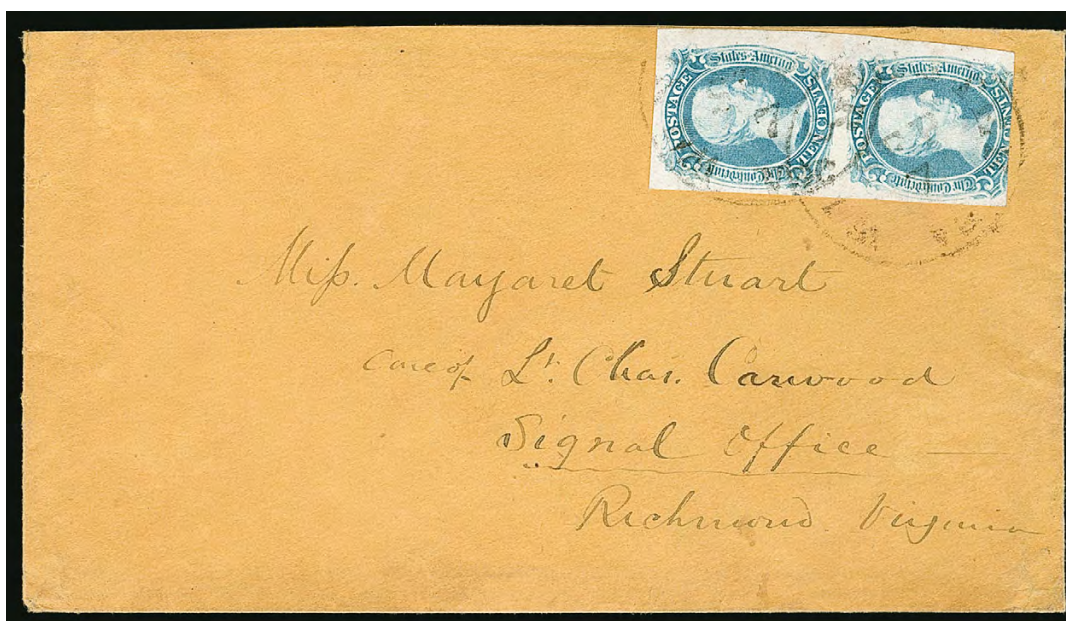 The Confederate States America
POSTAGE
TEN CENTS
The Confederate States America
POSTAGE
TEN CENTS
Miss. Margaret Stuart
Care of Lt. Chas. Carwood
Signal Office
Richmond Virginia